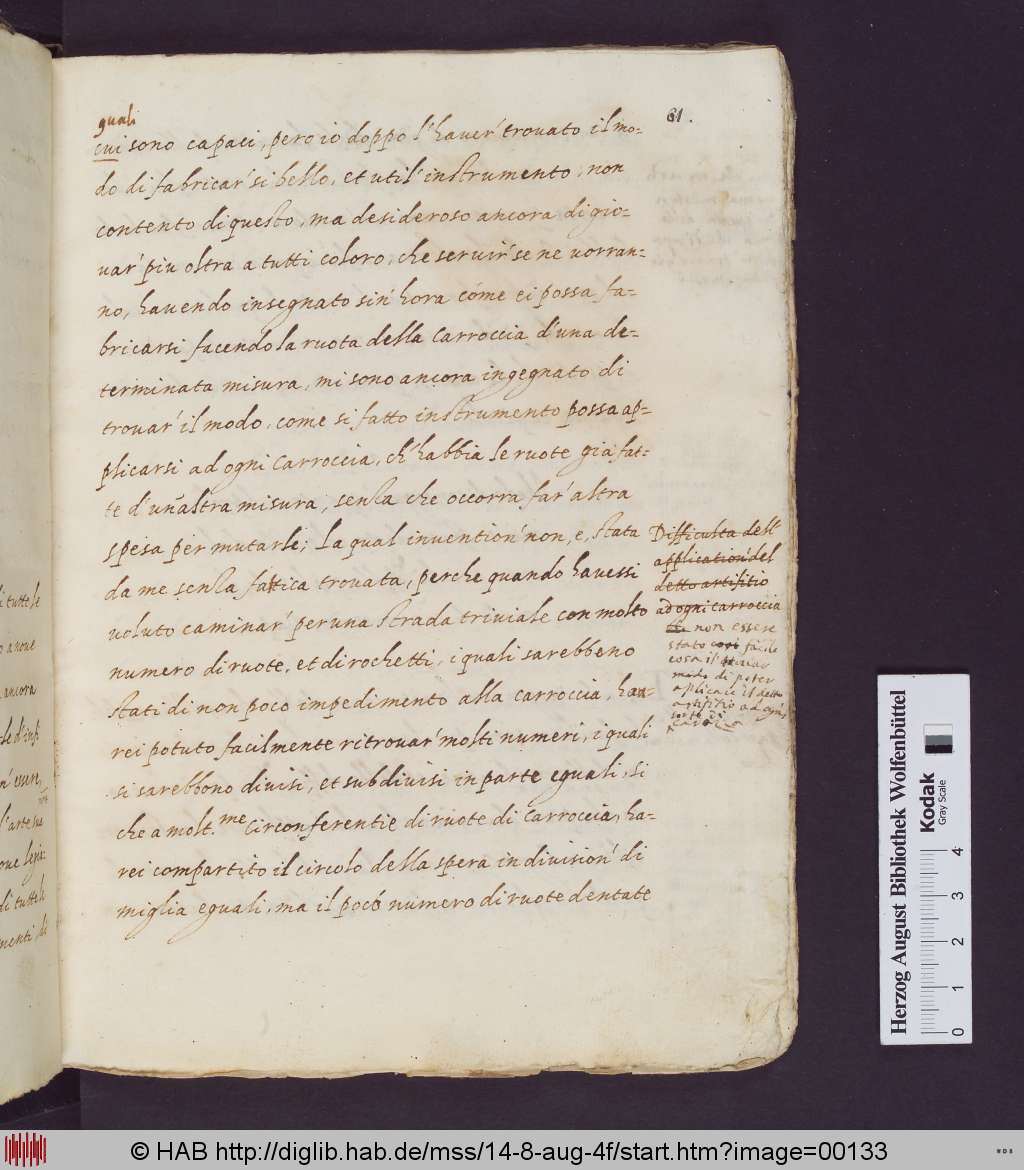 61.
quali
cui sono capaci, pero io doppo l'haver' trovato il mo=
do di fabricar' si bello, et util' instrumento, non
contento di questo, ma desideroso ancora di gio=
uar' piu oltra a tutti coloro, che seruir' se ne uorran=
no, hauendo insegnato sin' hora come ei possa fa=
bricarsi facendo la ruota della Carroccia d'una de=
terminata misura, mi sono ancora ingegnato di
trouar' il modo, come si fatto instrumento possa ap=
plicarsi ad ogni Carroccia, ch'habbia le ruote già fat=
te d'un'altra misura, senza che occorra far' altra
spesa per mutarle; La qual inuention' non, e, stata
da me senza fattica trouata, perche quando hauessi
uoluto caminar' per una strada triuiale con molto
numero di ruote, et di rochetti, i quali sarebbeno
stati di non poco impedimento alla carroccia, hau=
rei potuto facilmente ritrouar' molti numeri, i quali
si sarebbono diuisi, et subdiuisi in parte eguali, si
che a molt.me Circonferentie di ruote di Carroccia, ha=
rei compartito il circolo della spera in diuision' di
miglia eguali, ma il poco numero di ruote dentate
Difficulta dell'
application' del
detto artifitio
ad ogni carroccia
non essere
stato così facile
cosa il trovar
modo di poter
aplicare il detto
artifitio ad ogni
sorte di
i tutte le
ancora
l'arte
di tutte le
menti di
Herzog August Bibliothek Wolfenbüttel
Kodak
Gray Scale
0 1 2 3 4
© HAB http://diglib.hab.de/mss/14-8-aug-4f/start.htm?image=00133